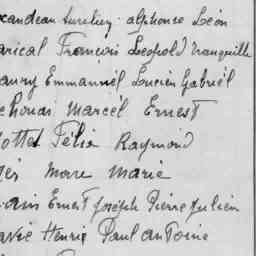 xandeau Aurelien alphonse Léon
arical François Léopold tranquille
aury Emmanuel Lucien Gabriel
echouas Marcel Ernest
ottet Félix Raymond
Marie
ain Ernest Joseph Pierre Julien
avie Henri Paul antoine